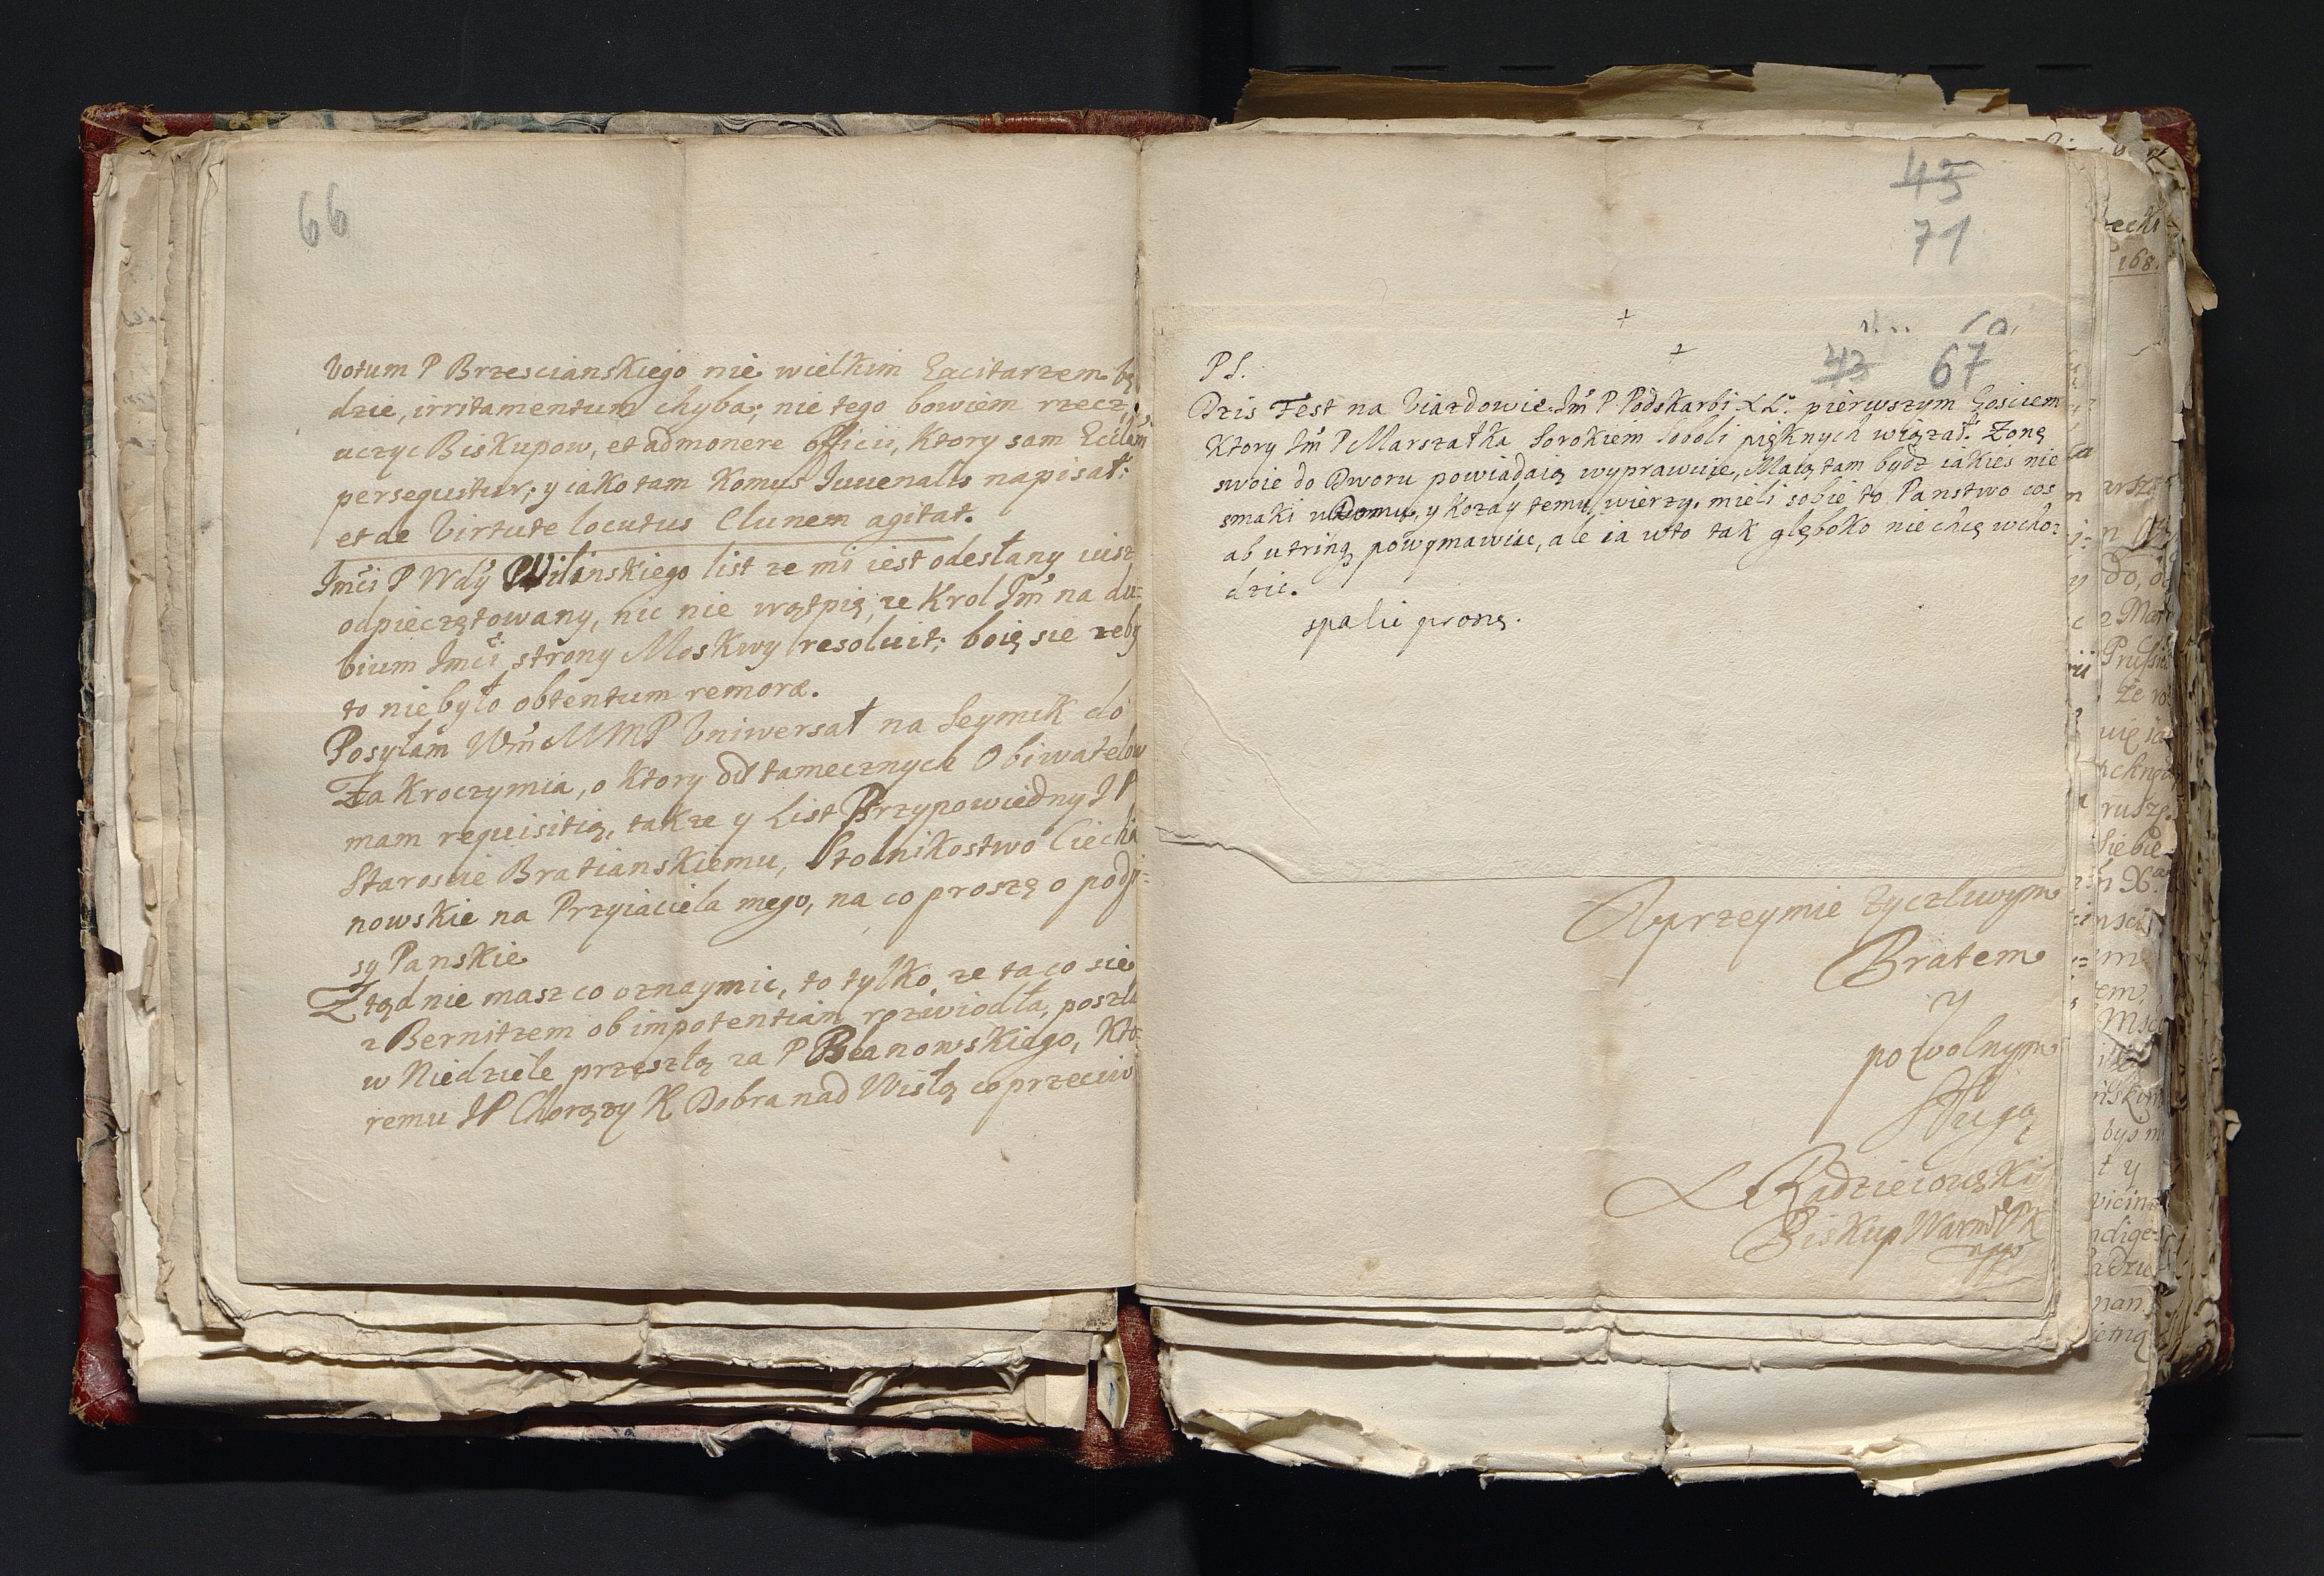 66
votum P Brzescianskiego nie wielkim Excitarzem bę
dzie, irritamentum chyba; nie tego bowiem rzecz,
uczyc Biskupow, et admonere officii, Ktory sam Eccłam
persequitur; y iako tam Komus Iuuenalis napisał:
et de Virtute locutus Clunem agitat.
Jmći P Wdy Wilenskiego list ze mi iest odesłany uisz
odpieczętowany, nic nie wątpię, ze Krol Jm na du-
bium Jmći strony Moskwy resoluit; boię sie zeby
to nie było obtentum remoræ.
Posyłam Wm MMP Vniwersał na Seymik do
Zakroczymia, o Ktory od tamecznych Obiwatelow
mam requisitią, takze y List Przypowiedny JP
Staroscie Bratianskiemu, Stolnikostwo Ciecha
nowskie na Przyiaciela mego, na co proszę o podpi-
sy Panskie
Ztąd nie masz co oznaymic, to tylko, ze ta co sie
z Bernitzem ob impotentiam rozwiodła, poszła
w Niedziele przeszłą za P Beanowskiego, Kto-
remu JP Chorązy K Dobra nad Wisłą co przeciw
45
71
43 67
PS.
Dzis Fest na Viazdowie. Jm P Podskarbi XL. pierwszym Gosciem
Ktory Jm P Marszałka Sorokiem Soboli pięknych wiązał. Zonę
swoie do Dworu powiadaią wyprawuie, Maią tam bydz iakies nie
smaki w Domu, y Kozdy temu wierzy. mieli sobie to Panstwo cos
ab utrinq powymawiac, ale ia w to tak głęboko nie chcę wchoz
dzic.
spalic proszę.
Uprzeymie Zyczliwym
Bratem
y
powolnym
Sługą
Radzieiowski
Biskup Warm PK
mpp